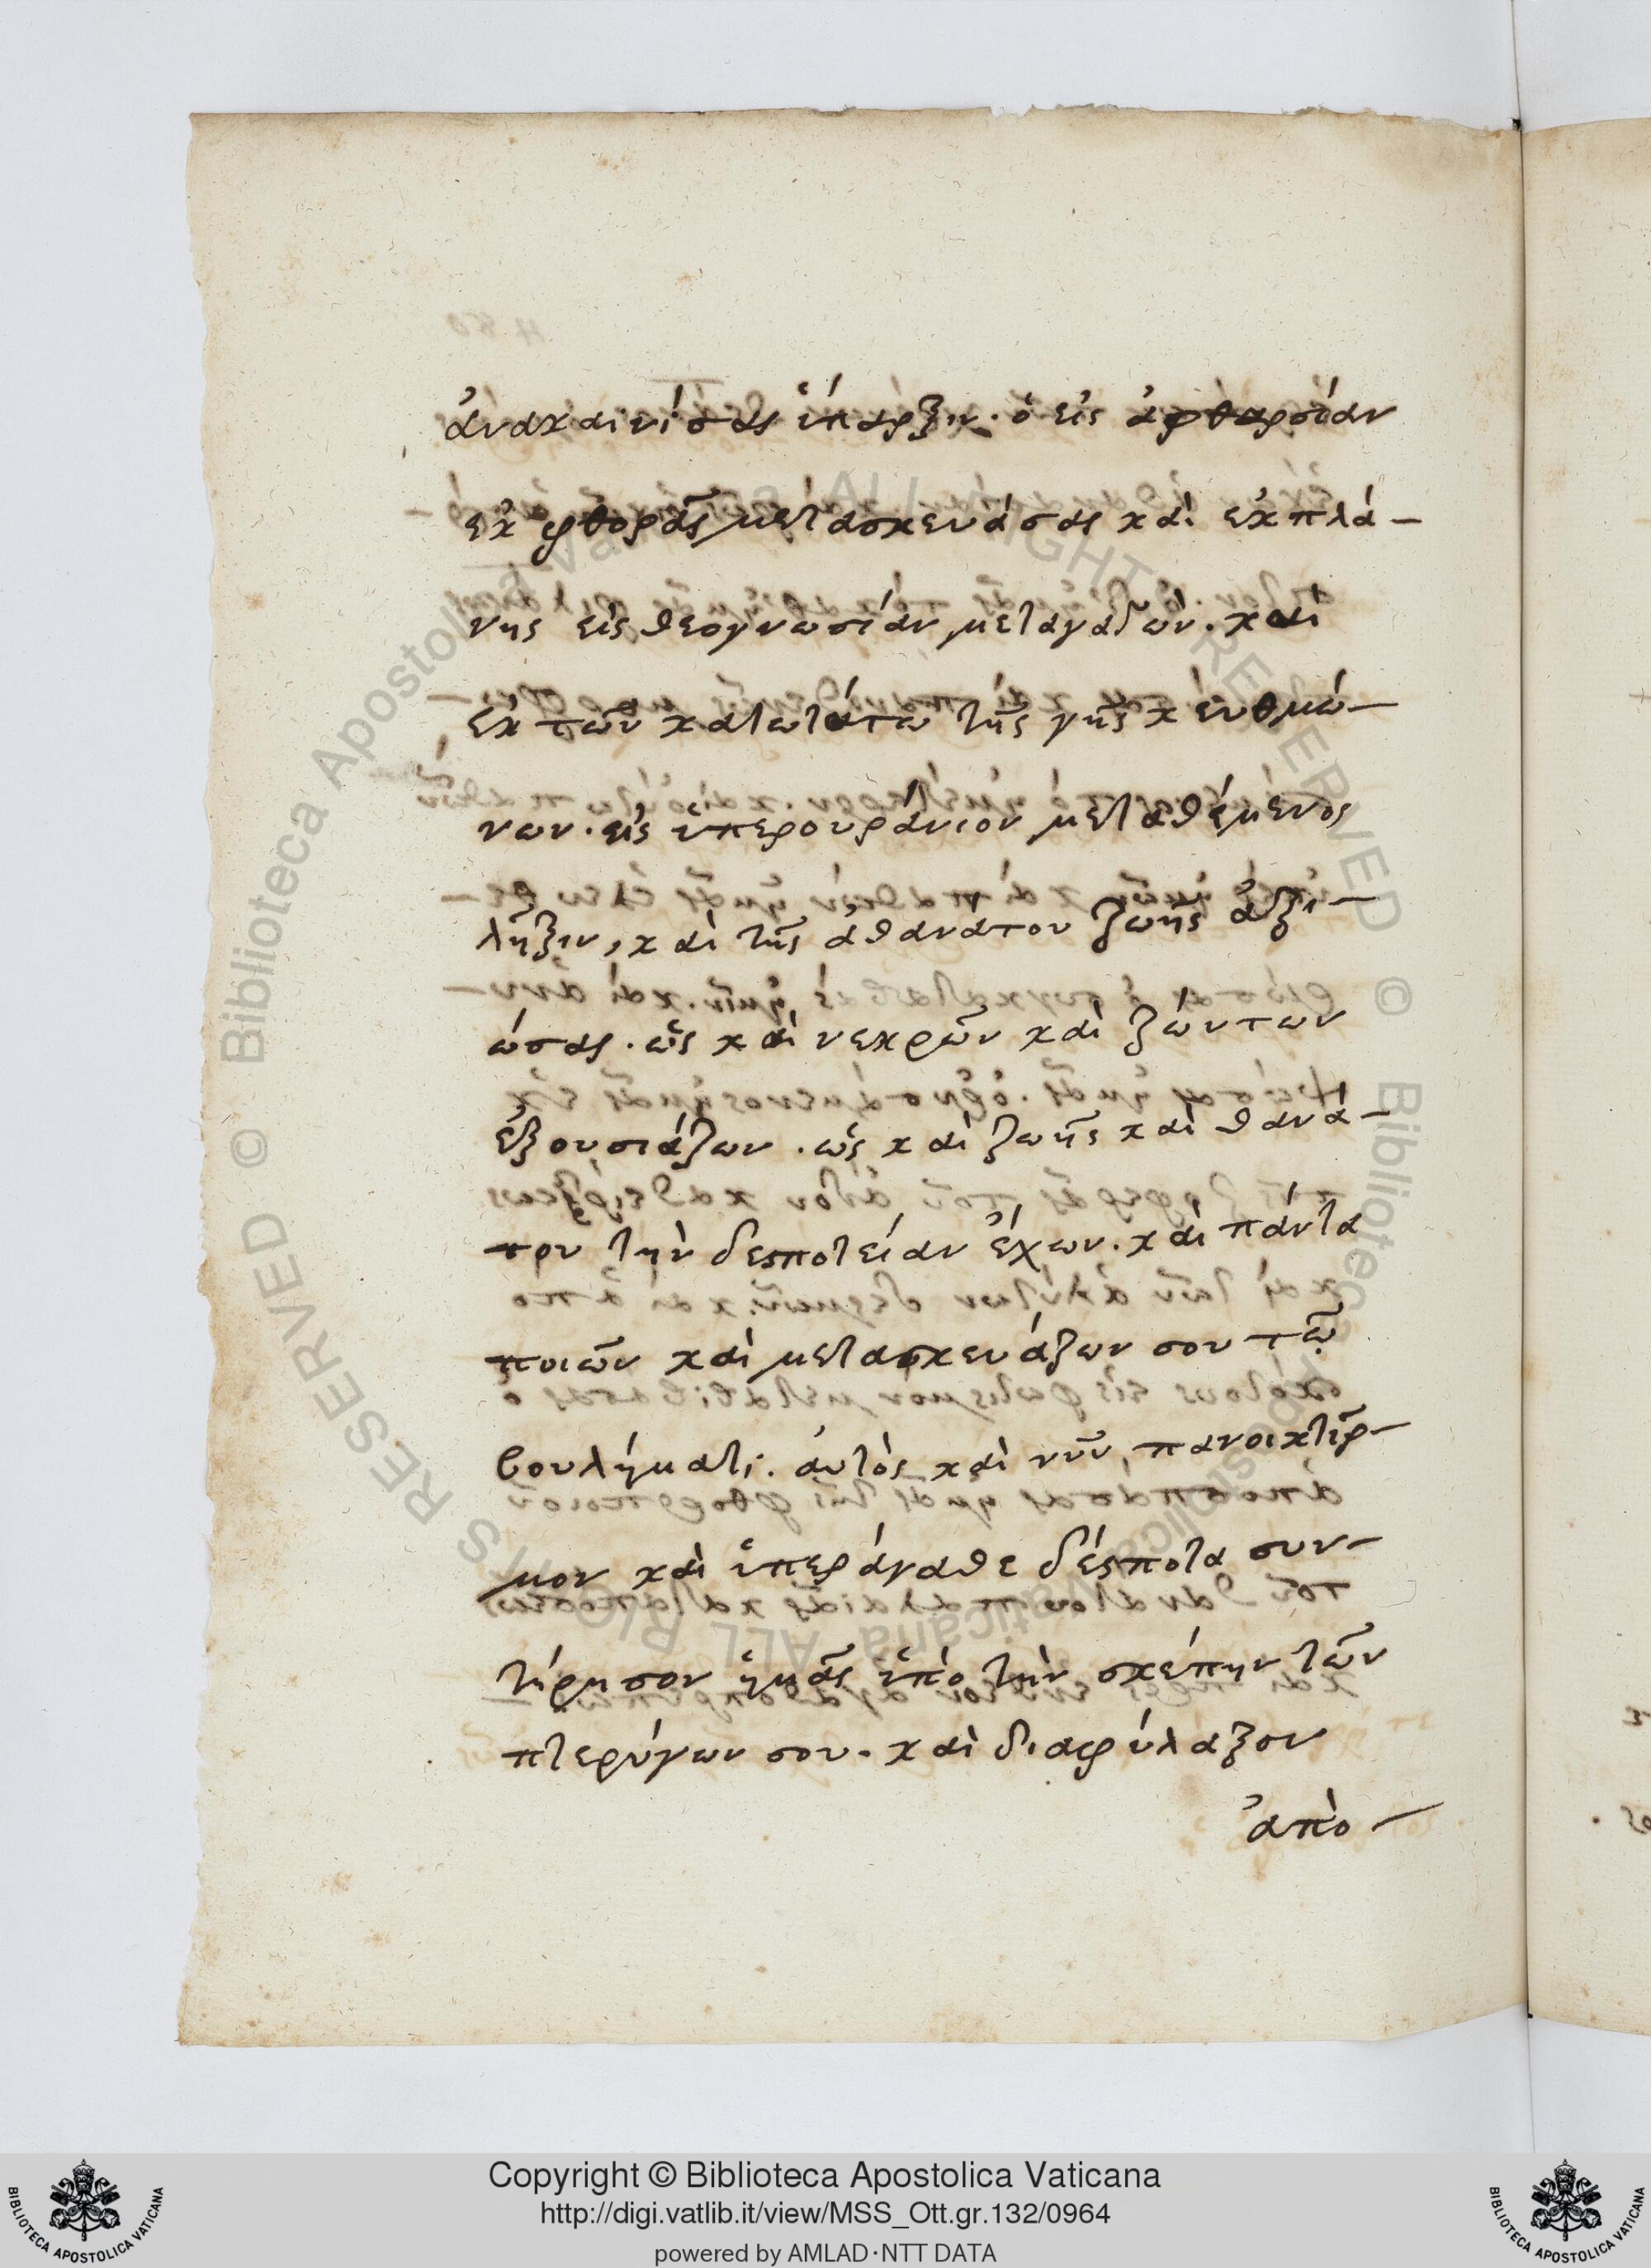 ἀνακαινίσας ὕπαρξιν. ὁ εἰς ἀφθαρσίαν
ἐκ φθορᾶς μετασκευάσας καὶ ἐκ πλά-
νης εἰς θεογνωσίαν μεταγαγών. καὶ
ἐκ τῶν κατωτάτω τῆς γῆς κευθμώ-
νων. εἰς ὑπερουράνιον μεταθέμενος
λῆξιν, καὶ τῆς ἀθανάτου ζωῆς ἀξι-
ώσας. ὡς καὶ νεκρῶν καὶ ζώντων
ἐξουσιάζων. ὡς καὶ ζωῆς καὶ θανά-
του τὴν δεσποτείαν ἔχων. καὶ πάντα
ποιῶν καὶ μετασκευάζων σου τῶ
βουλήματι. αὐτὸς καὶ νῦν, πανοικτίρ-
μον καὶ ὑπεράγαθε δέσποτα συν-
τήρησον ἡμᾶς ὑπὸ τὴν σκέπην τῶν
πτερύγων σου. καὶ διαφύλαξον
ἀπὸ-
© Biblioteca Apostolica Vaticana ALL RIGHTS RESERVED © Biblioteca Apostolica Vaticana ALL RIGHTS RESERVED
Copyright © Biblioteca Apostolica Vaticana
http://digi.vatlib.it/view/MSS_Ott.gr.132/0964
powered by AMLAD·NTT DATA
BIBLIOTECA APOSTOLICA VATICANA
BIBLIOTECA APOSTOLICA VATICANA